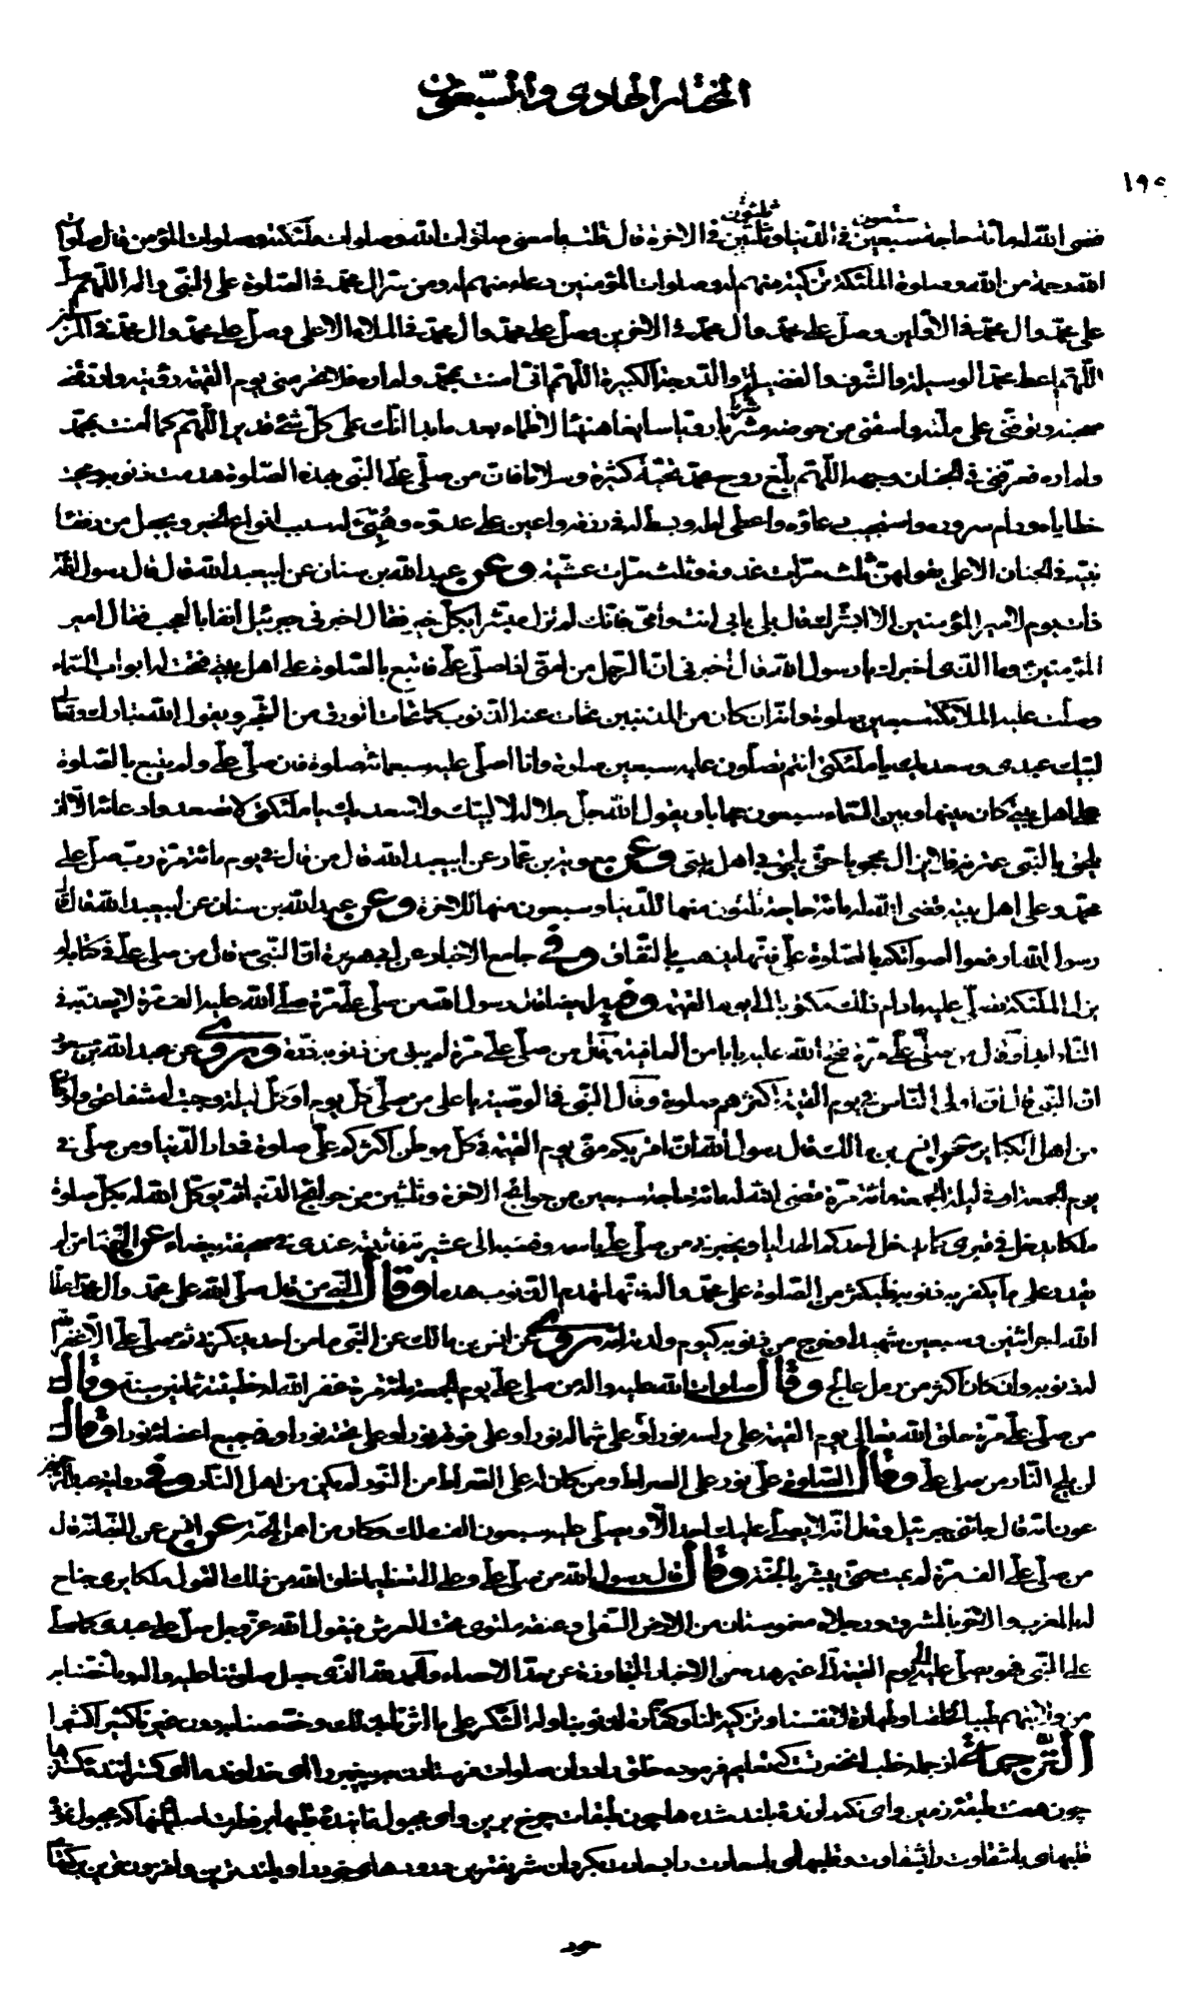 المختار الحادي والسبعون
١٩٥
سبعون ثلثون
قضى الله له مائة حاجة سبعين في الدنيا وثلثين في الاخرة قال قلت ما معنى صلوات الله وصلوات ملئكته وصلوات المؤمن قال صلوات
الله رحمة من الله وصلوة الملئكة تزكية منهم له وصلوات المؤمنين دعاء منهم له ومن سر ال محمد في الصلوة على النبي واله اللهم صل
على محمد وال محمد في الاولين وصل على محمد وال محمد في الاخرين وصل على محمد وال محمد في الملاء الاعلى وصل على محمد وال محمد في المرسلين
اللهم اعط محمدا الوسيلة والشرف والفضيلة والدرجة الكبيرة اللهم اني امنت بمحمد ولم اره فلا تحرمني يوم القيمة رؤيته وارزقني
صحبته وتوفني على ملته واسقني من حوضه مشربا رويا سائغا هنيئا لا اظماء بعده ابدا انك على كل شئ قدير اللهم كما امنت بمحمد
ولم اره فعرفني في الجنان وجهه اللهم بلغ روح محمد تحية كثيرة وسلاما فان من صلى على النبي بهذه الصلوة هدمت ذنوبه ومحيت
خطاياه ودام سروره واستجيب دعاؤه واعطى امله وبسط له في رزقه واعين على عدوه وهيئ له سبب انواع الخير ويجعل من رفقاء
نبيه في الجنان الاعلى يقولهن ثلث مرات غدوة وثلث مرات عشية وعن عبد الله بن سنان عن ابيعبد الله قال قال رسول الله
ذات يوم لامير المؤمنين الا ابشرك قال بلى بابي انت وامي فانك لم تزل مبشرا بكل خير فقال اخبرني جبرئيل انفا بالعجب فقال امير
المؤمنين وما الذي اخبرك يا رسول الله قال اخبرني ان الرجل من امتي اذا صلى علي فاتبع بالصلوة على اهل بيتي فتحت له ابواب السماء
وصلت عليه الملائكة سبعين صلوة وانه ان كان من المذنبين تحات عنه الذنوب كما تحات الورق من الشجر ويقول الله تبارك وتعالى
لبيك عبدي وسعديك يا ملئكتي انتم تصلون عليه سبعين صلوة وانا اصلي عليه سبعمائة صلوة فان صلى علي ولم يتبع بالصلوة
على اهل بيتي كان بينها وبين السماء سبعون حجابا ويقول الله جل جلاله لا لبيك ولا سعديك يا ملئكتي لا تصعدوا دعائه الا ان
يلحق بالنبي عترته فلا يزال محجوبا حتى يلحق بي اهل بيتي وعن معوية بن عمار عن ابيعبد الله قال من قال في يوم مائة مرة رب صل على
محمد وعلى اهل بيته قضى الله له مائة حاجة ثلثون منها للدنيا وسبعون منها للاخرة وعن عبد الله بن سنان عن ابيعبد الله قال قال
رسول الله ارفعوا اصواتكم بالصلوة علي فانها تذهب بالنفاق وفي جامع الاخبار عن ابي هريرة ان النبي ص قال من صلى علي في كتاب لم
يزل الملئكة يصلي عليه ما دام ذلك مكتوبا الى يوم القيمة وفيه ايضا قال رسول الله من صلى علي مرة صلى الله عليه الف مرة لا يعذبه في
النار ابدا وقال من صلى علي مرة فتح الله عليه بابا من العافية وقال من صلى علي مرة لم يبق من ذنوبه ذرة وروى عن عبد الله بن مسعود
ان النبي قال ان اولى الناس بي يوم القيمة اكثرهم صلوة وقال النبي في الوصية يا علي من صلى كل يوم او كل ليلة وجبت له شفاعتي ولو كان
من اهل الكبائر عن انس بن مالك قال رسول الله ان اقربكم مني يوم القيمة في كل موطن اكثركم علي صلوة في دار الدنيا ومن صلى في
يوم الجمعة او في ليلة الجمعة مائة مرة قضى الله له مائة حاجة سبعين من حوائج الاخرة وثلثين من حوائج الدنيا ثم يوكل الله له بكل صلوة
ملكا يدخل في قبري كما يدخل احدكم الهدايا ويخبرني من صلى علي باسمه ونسبه الى عشيرته فاثبته عندي في صحيفة بيضاء عن الرضا من لم
يقدر على ما يكفر به ذنوبه فليكثر من الصلوة على محمد واله فانها تهدم الذنوب هدما وقال النبي من قال صلى الله على محمد وال محمد اعطاه
الله اجر اثنين وسبعين شهيدا وخرج من ذنوبه كيوم ولدته امه وروى عن انس بن مالك عن النبي ما من احد يذكرني ثم صلى علي الا غفر الله
له ذنوبه وان كان اكثر من رمل عالج وقال صلوات الله عليه واله من صلى علي يوم الجمعة مائة مرة غفر الله له خطيئة ثمانين سنة وقال
من صلى علي مرة خلق الله تعالى يوم القيمة على راسه نورا وعلى شماله نورا وعلى فوقه نورا وعلى تحته نورا وفي جميع اعضائه نورا وقال
لن يلج النار من صلى علي وقال الصلوة علي نور على الصراط ومن كان له على الصراط من النور لم يكن من اهل النار وفي رواية عبد الرحمن
عوف انه قال جائني جبرئيل وقال انه لا يصلي عليك احد الا ويصلي عليه سبعون الف ملك وكان من اهل الجنة عن انس عن النبي انه قال
من صلى علي الف مرة لم يمت حتى يبشر بالجنة وقال قال رسول الله من صلى علي وعلى الي تعظيما خلق الله من ذلك القول ملكا يرى جناح
له بالمغرب والاخر بالمشرق ورجلاه مغموستان من الارض السفلى وعنقه ملتوي تحت العرش فيقول الله عز وجل صل على عبدي كما صلى
على النبي فهو يصلي عليه الى يوم القيمة الى غير هذه من الاخبار المتجاوزة عن حد الاحصاء والحمد لله الذي جعل صلوتنا عليه واله وما خصنا به
من ولايتهم طيبا لخلقنا وطهارة لانفسنا وتزكية لنا وكفارة لذنوبنا وله الشكر على ما اثرنا بذلك وخصصنا به دون غيرنا كثيرا كثيرا
الترجمة از جمله خطب انحضرتست كه تعليم فرموده خلق را در ان صلوات فرستادن بر پيغمبر را اى خداوند اى گستراننده گسترده ها
چون هفت طبقه زمين واى نگه دارنده بلند شده ها چون طبقات چرخ برين واى مجبول نماينده قلبها بر فطرت اصلي انها كه مجبول نمودى
قلبهاى با شقاوت را بشقاوت وقلبهاى با سعادت را بسعادت بگردان شريفترين درودهاى خود را وبلندترين وافزون ترين بركتهاى
خود